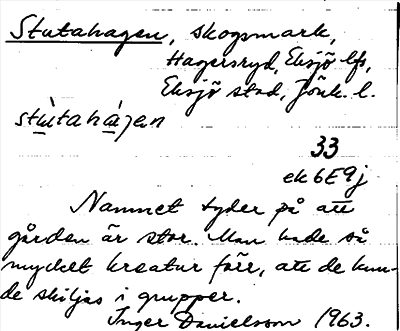 Stutahagen, skogsmark,
Hagersryd, Eksjö lfs,
Eksjö stad, Jönk. l.
stù̱tahá̱gen
33
ek 6E9j
Namnet tyder på att
gården är stor. Man hade så
mycket kreatur förr, att de kun-
de skiljas i grupper.
Inger Danielsson 1963.